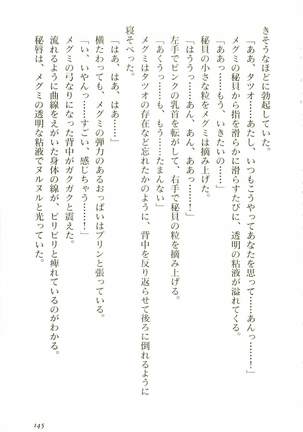 きそうなほどに勃起していた。
「ああ、タツオ……あたし、いつもこうやってあなたを思って……あんっ……！」
メグミの秘貝から指を滑らかに滑らすたびに、透明の粘液が溢れてくる。
「あああ……もう、いきたいの……」
秘貝の小さな粒をメグミは摘み上げた。
「はううっ……あん、あん、ああっ……！」
左手でピンクの乳首を転がして、右手で秘貝の粒を摘み上げる。
「あくうっ……も、もう……たまんない」
メグミはタツオの存在など忘れたかのように、背中を反り返らせて後ろに倒れるように
寝そべった。
「はあ、はあ、はあ……」
横たわっても、メグミの弾力のあるおっぱいはプリンと張っている。
「い、いやん……すごい、感じちゃう……！」
メグミの弓なりになった背中がガクガクと震えた。
流れるように曲線をえがいた身体の線が、ピリピリと痺れているのがわかる。
秘唇は、メグミの透明な粘液でヌルヌルと光っていた。
145